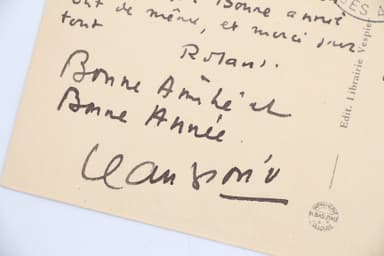 Bonne année
ont de même, et merci pour
tout
Roland.
Bonne Amitié et
Bonne Année
Jean
Edit. Librairie Vespie